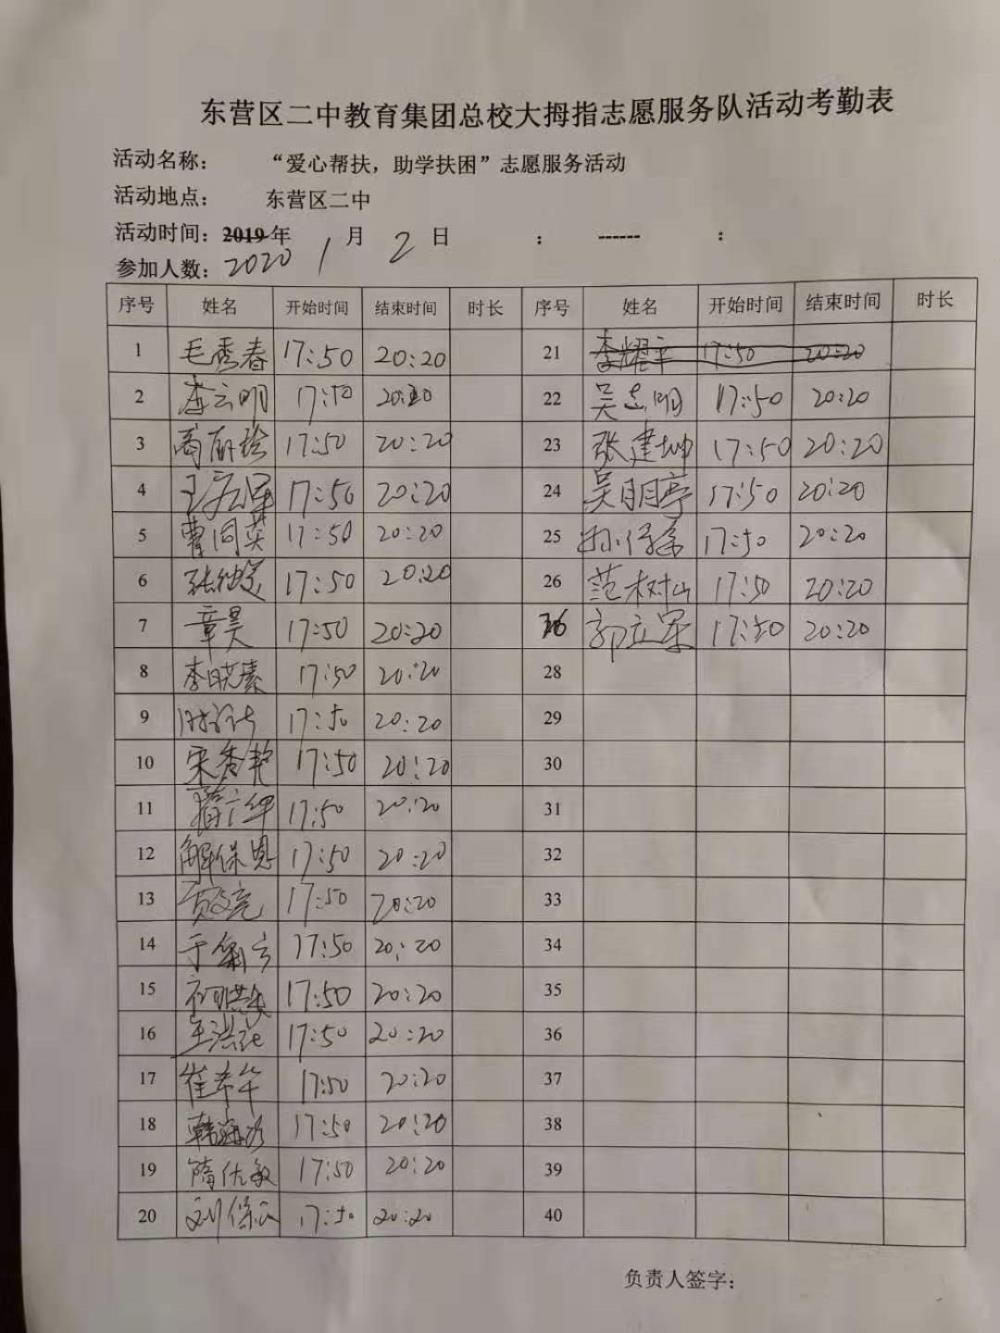 东营区二中教育集团总校大拇指志愿服务队活动考勤表
活动名称： “爱心帮扶，助学扶困”志愿服务活动
活动地点： 东营区二中
活动时间：2019年 1 月 2 日 ： ------ ：
参加人数：2020
序号 姓名 开始时间 结束时间 时长 序号 姓名 开始时间 结束时间 时长
1 毛秀春 17:50 20:20 21 李耀平 17:50 20:20
2 李云明 17:50 20:20 22 吴志明 17:50 20:20
3 17:50 20:20 23 张建坤 17:50 20:20
4 王宏军 17:50 20:20 24 吴明亭 17:50 20:20
5 曹同英 17:50 20:20 25 17:50 20:20
6 17:50 20:20 26 范树山 17:50 20:20
7 章昊 17:50 20:20 26 郭立军 17:50 20:20
8 李晓蓁 17:50 20:20 28
9 17:50 20:20 29
10 宋秀艳 17:50 20:20 30
11 17:50 20:20 31
12 解保恩 17:50 20:20 32
13 17:50 20:20 33
14 17:50 20:20 34
15 17:50 20:20 35
16 王洪花 17:50 20:20 36
17 崔希午 17:50 20:20 37
18 17:50 20:20 38
19 隋佐敏 17:50 20:20 39
20 17:50 20:20 40
负责人签字：